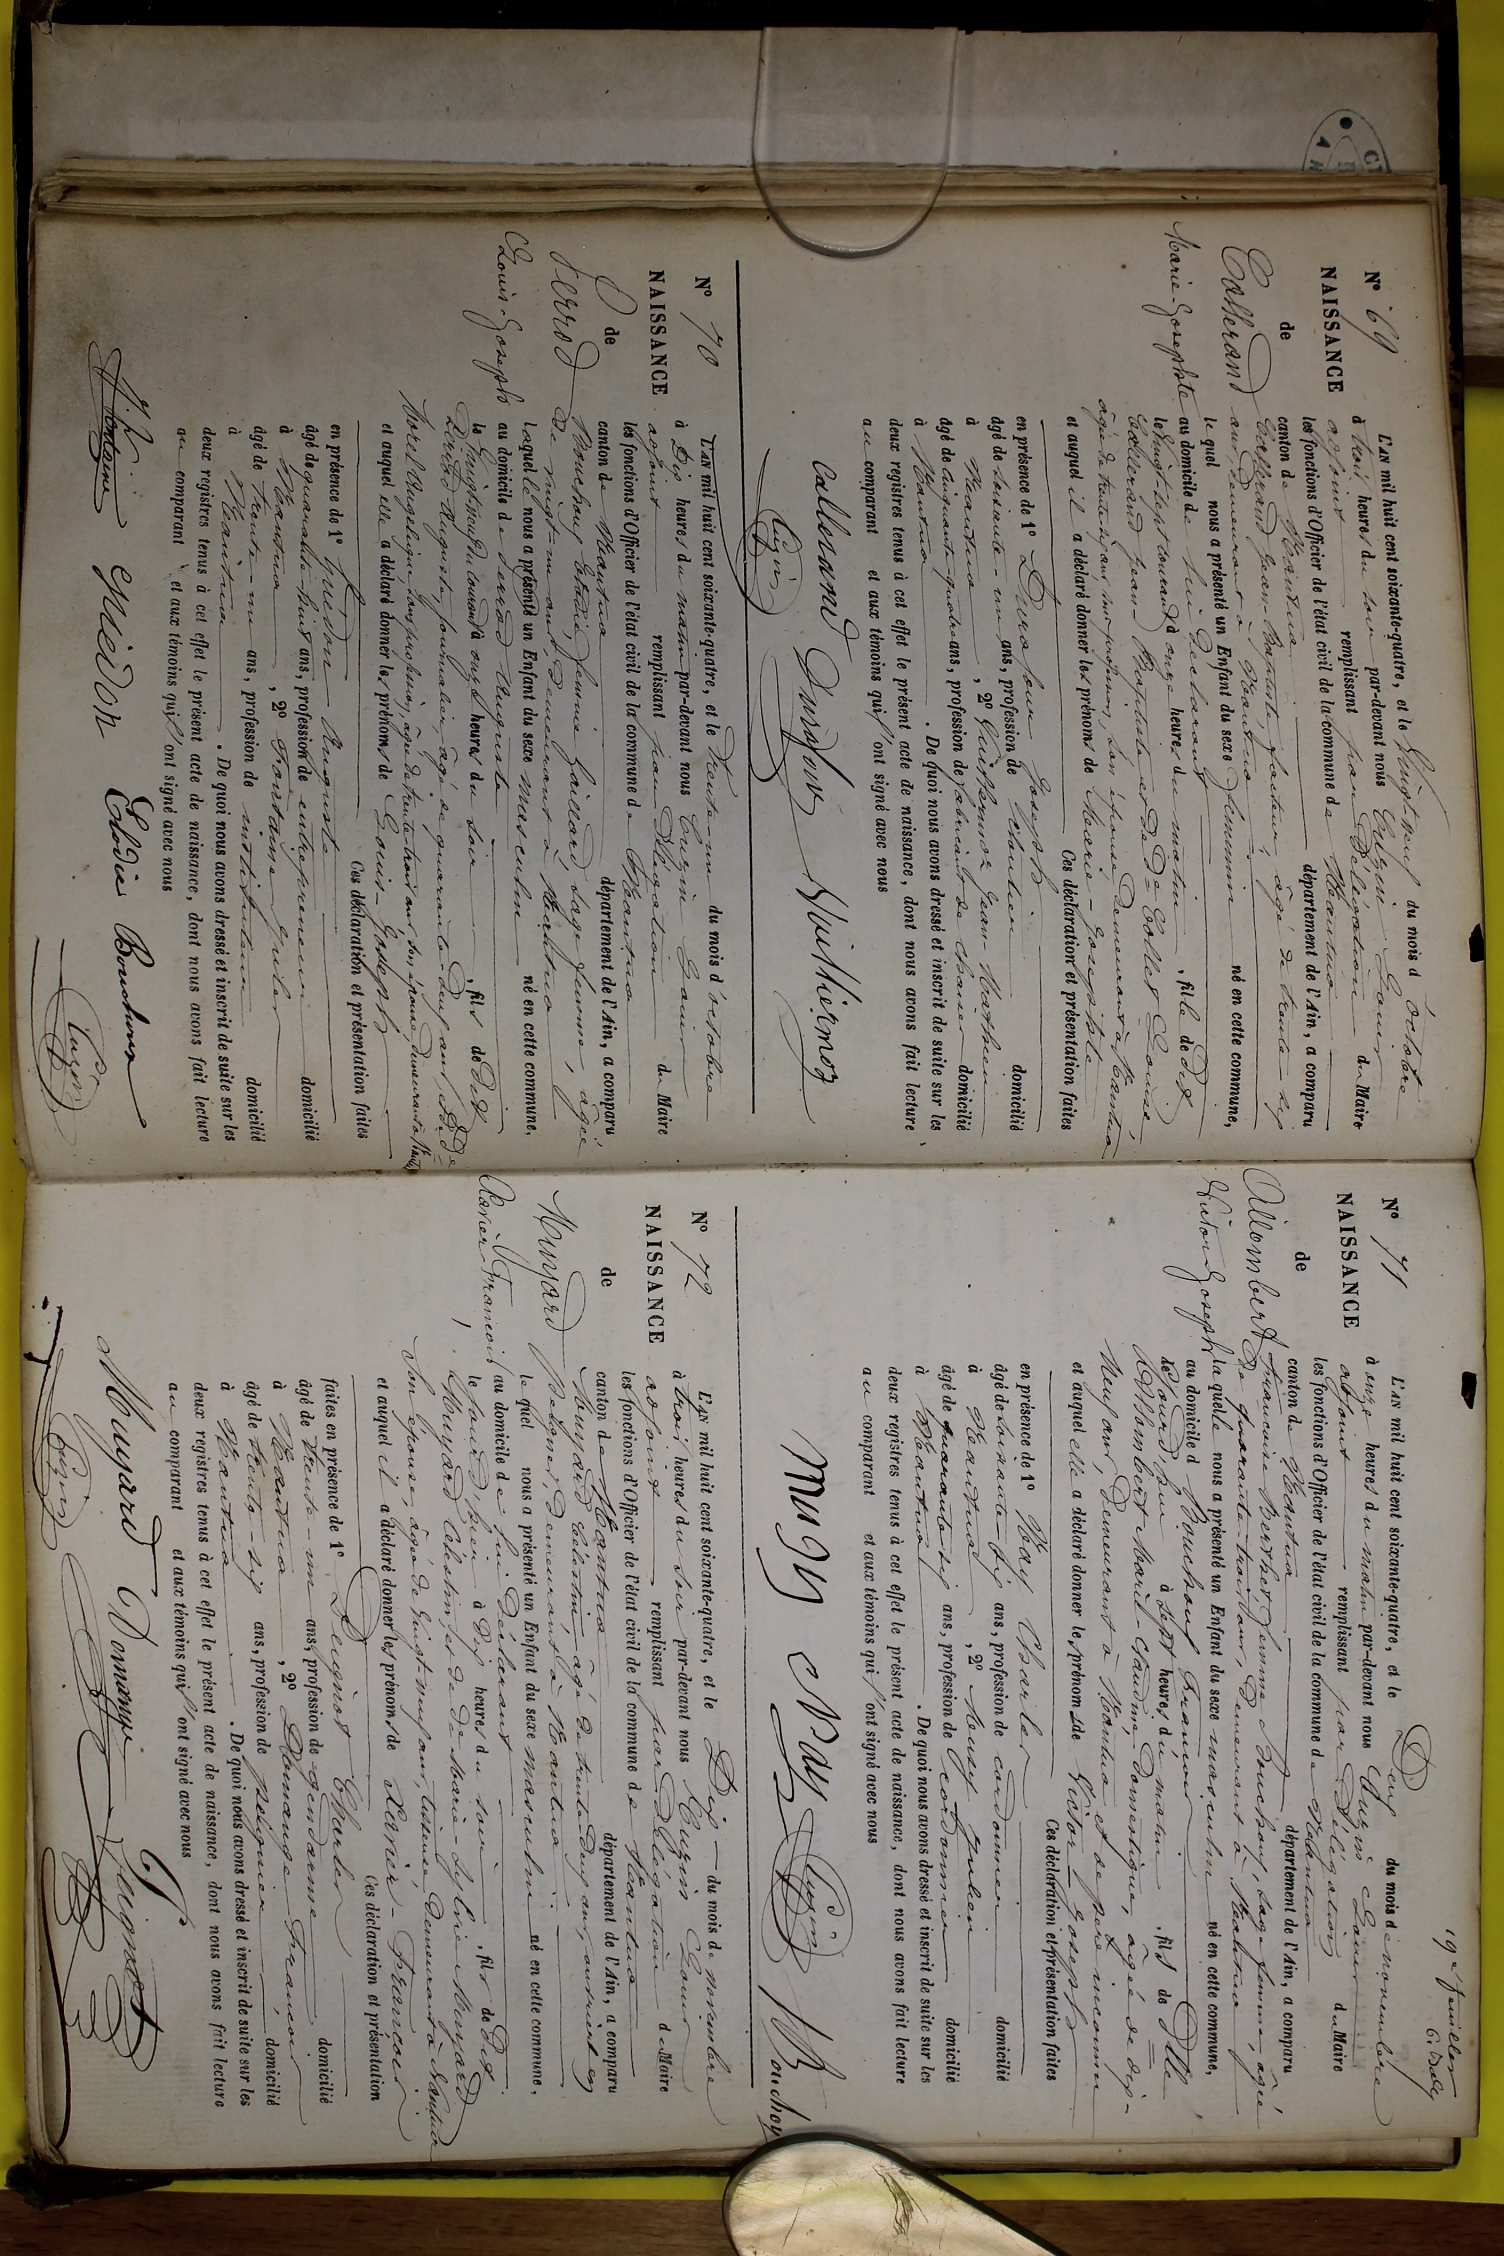 N° 69
NAISSANCE
de
Collerand
Marie-Josephte
L'AN mil huit cent soixante-quatre, et le Vingt neuf du mois d'octobre
à trois heures du soir par-devant nous Cuzin Louis
adjoint remplissant par Délégation du Maire
les fonctions d'Officier de l'état civil de la commune de Nantua
canton de Nantua département de l'Ain, a comparu
Collerand Jean-Baptiste, facteur, âgé de trente six
ans, demeurant à Nantua
le quel nous a présenté un Enfant du sexe féminin né en cette commune,
au domicile de lui déclarant
le Vingt-sept courant à onze heures du matin, fille de dit
Collerand Jean Baptiste et de De Collet Louise,
âgée de trente cinq ans, sans profession, son épouse demeurant à Nantua
et auquel il a déclaré donner les prénoms de Marie-Josephte
Ces déclaration et présentation faites
en présence de 1° Durafour Joseph
âgé de soixante-un ans, profession de domicilié
à Nantua, 2° Guillermoz Jean Mathieu
âgé de cinquante-quatre ans, profession de fabricant de chaises domicilié
à Nantua. De quoi nous avons dressé et inscrit de suite sur les
deux registres tenus à cet effet le présent acte de naissance, dont nous avons fait lecture
au comparant et aux témoins qui ont signé avec nous
Collerand Durafour Guillermoz
Cuzin
N° 70
NAISSANCE
de
Perrod
Louis-Joseph
L'AN mil huit cent soixante-quatre, et le Trente-un du mois d'octobre
à Dix heures du matin par-devant nous Cuzin Louis
adjoint remplissant par Délégation du Maire
les fonctions d'Officier de l'état civil de la commune de Nantua
canton de Nantua département de l'Ain, a comparu
Bouchoux Elodie femme Gaillard, sage femme, âgée
de vingt-un ans demeurant à Nantua
laquelle nous a présenté un Enfant du sexe masculin né en cette commune,
au domicile de Perrod Auguste
le Vingt neuf du courant à onze heures du soir, fils de dit
Perrod Auguste, journalier, âgé de quarante-deux ans, et de De
Morel Angélique, sans profession, âgée de trente trois ans son épouse demeurant à Nantua
et auquel elle a déclaré donner les prénoms de Louis-Joseph
Ces déclaration et présentation faites
en présence de 1° Guédon Auguste
âgé de quarante-huit ans, profession de entrepreneur domicilié
à Nantua, 2° Fontaine Jules
âgé de trente-un ans, profession de instituteur domicilié
à Nantua. De quoi nous avons dressé et inscrit de suite sur les
deux registres tenus à cet effet le présent acte de naissance, dont nous avons fait lecture
au comparant et aux témoins qui ont signé avec nous
Jh Fontaine Guédon Elodie Bouchoux
Cuzin
19e feuillet
N° 71
NAISSANCE
de
Allombert
Victor Joseph
L'AN mil huit cent soixante-quatre, et le Deux du mois de novembre
à onze heures du matin par-devant nous Cuzin Louis
adjoint remplissant par Délégation du Maire
les fonctions d'Officier de l'état civil de la commune de Nantua
canton de Nantua département de l'Ain, a comparu
Françoise Berthet, femme Bouchoux, sage femme, âgée
de quarante trois ans, demeurant à Nantua
la quelle nous a présenté un Enfant du sexe masculin né en cette commune,
au domicile d Bouchoux François
de aujourd'hui à sept heures du matin, fils de Dlle
Allombert Marie-Claudine, Domestique, âgée de dix-
neuf ans, demeurant à Nantua et de père inconnu
et auquel elle a déclaré donner les prénoms de Victor-Joseph
Ces déclaration et présentation faites
en présence de 1° Nay Charles
âgé de soixante-six ans, profession de cordonnier domicilié
à Nantua, 2° Mugy Julien
âgé de quarante six ans, profession de cordonnier domicilié
à Nantua. De quoi nous avons dressé et inscrit de suite sur les
deux registres tenus à cet effet le présent acte de naissance, dont nous avons fait lecture
au comparant et aux témoins qui ont signé avec nous
Mugy Nay Cuzin f Bouchoux
N° 72
NAISSANCE
de
Muyard
Xavier François
L'AN mil huit cent soixante-quatre, et le Dix du mois de novembre
à trois heures du soir par-devant nous Cuzin Louis
adjoint remplissant par Délégation du Maire
les fonctions d'Officier de l'état civil de la commune de Nantua
canton de Nantua département de l'Ain, a comparu
Muyard Célestin âgé de trente deux ans, ouvrier en
peignes, demeurant à Nantua
le quel nous a présenté un Enfant du sexe masculin né en cette commune,
au domicile de lui déclarant
le aujourd'hui à Dix heures du soir, fils de Dit
Muyard Célestin, et de De Marie-Sylvie Muyard
son épouse, âgée de vingt-neuf ans, tisseuse demeurant à Nantua
et auquel il a déclaré donner les prénoms de Xavier-François
Ces déclaration et présentation
faites en présence de 1° Peignot Charles
âgé de trente-un ans, profession de gendarme domicilié
à Nantua, 2° Domange François
âgé de trente-six ans, profession de peignier domicilié
à Nantua. De quoi nous avons dressé et inscrit de suite sur les
deux registres tenus à cet effet le présent acte de naissance, dont nous avons fait lecture
au comparant et aux témoins qui ont signé avec nous
Muyard Domange Peignot
Cuzin